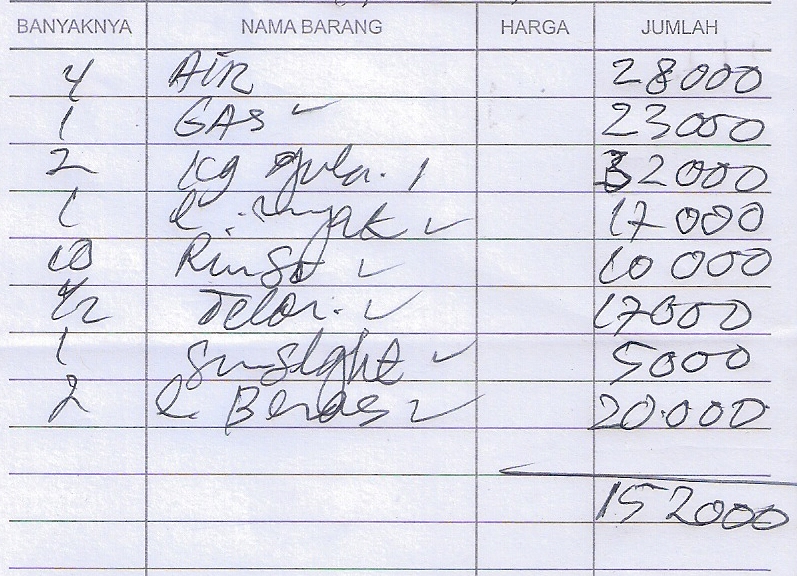 BANYAKNYA NAMA BARANG HARGA JUMLAH
4 AIR 28000
1 GAS 23000
2 kg gula. 32000
1 l. minyak 17000
10 Rinso 10 000
1/2 Telor. 17000
1 sunslght 5000
2 l Beras 20.000
152000